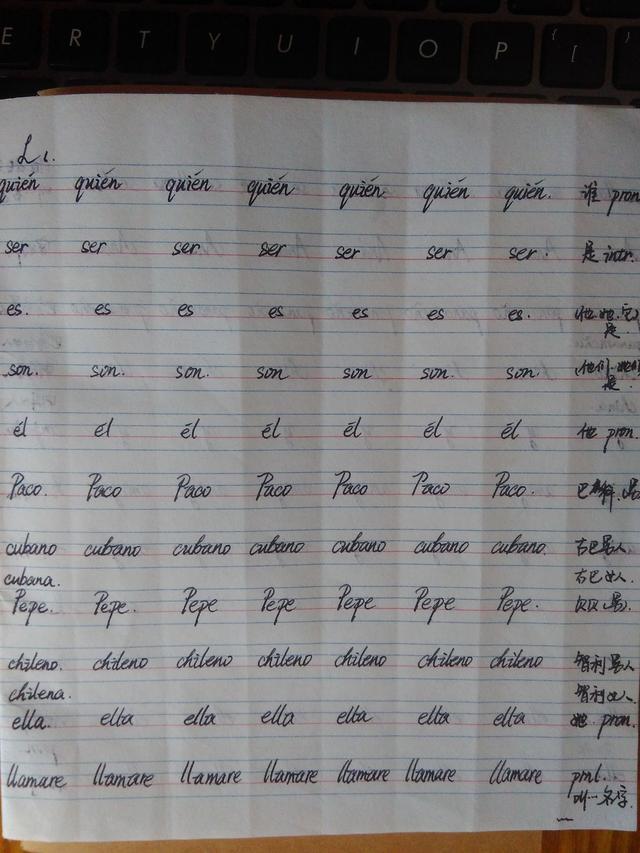 E R T Y U I O P { [
L1.
quién quién quién quién quién quién quién. 谁 pron
ser ser ser ser ser ser ser. 是 intr.
es. es es es es es es. 他.她.它
是
son. son. son. son son son. son. 他们.她们
是
él él él él él él él 他 pron.
Paco. Paco Paco Paco Paco Paco Paco. 巴科.男
cubano cubano cubano cubano cubano cubano cubano. 古巴男人
cubana. 古巴女人.
Pepe. Pepe. Pepe Pepe Pepe Pepe Pepe. 贝贝(男).
chileno. chileno chileno chileno chileno chileno chileno 智利男人
chilena. 智利女人.
ella. ella ella ella ella ella ella 她. pron.
llamare llamare llamare llamare llamare llamare llamare prnl.
叫…名字.